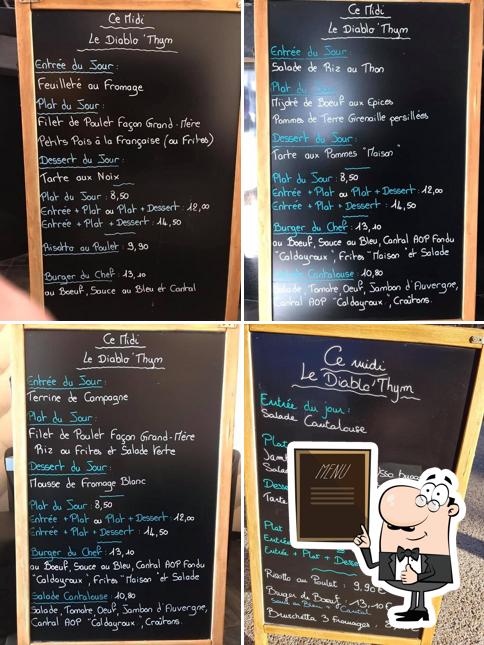 Ce Midi
Le Diablo'Thym
Entrée du Jour :
Feuilleté au Fromage
Plat du Jour :
Filet de Poulet Façon Grand-Mère
Petits Pois à la Française (ou Frites)
Dessert du Jour :
Tarte aux Noix
Plat du Jour : 8,50
Entrée + Plat ou Plat + Dessert : 12,00
Entrée + Plat + Dessert : 14,50
Risotto au Poulet : 9,90
Burger du Chef : 13,10
au Boeuf, Sauce au Bleu et Cantal
Ce Midi
Le Diablo'Thym
Entrée du Jour :
Salade de Riz au Thon
Plat du Jour :
Mijoté de Boeuf aux Epices
Pommes de Terre Grenaille persillées
Dessert du Jour :
Tarte aux Pommes "Maison"
Plat du Jour : 8,50
Entrée + Plat ou Plat + Dessert : 12,00
Entrée + Plat + Dessert : 14,50
Burger du Chef : 13,10
au Boeuf, Sauce au Bleu, Cantal AOP Fondu
"Caldayroux", Frites "Maison" et Salade
Salade Cantalouse : 10,80
Salade, Tomate, Oeuf, Jambon d'Auvergne,
Cantal AOP "Caldayroux", Croûtons.
Ce Midi
Le Diablo'Thym
Entrée du Jour :
Terrine de Campagne
Plat du Jour :
Filet de Poulet Façon Grand-Mère
Riz ou Frites et Salade Verte
Dessert du Jour :
Mousse de Fromage Blanc
Plat du Jour : 8,50
Entrée + Plat ou Plat + Dessert : 12,00
Entrée + Plat + Dessert : 14,50
Burger du Chef : 13,10
au Boeuf, Sauce au Bleu, Cantal AOP Fondu
"Caldayroux", Frites "Maison" et Salade
Salade Cantalouse : 10,80
Salade, Tomate, Oeuf, Jambon d'Auvergne,
Cantal AOP "Caldayroux", Croûtons.
Ce midi
Le Diablo'Thym
Entrée du jour :
Salade Cantalouse
Plat
Tarte
Plat
Entrée + Plat +
Risotto au Poulet : 9,90€
Burger de Boeuf : 13,10€
Sauce au Bleu + Cantal
Bruschetta 3 Fromages :
MENU